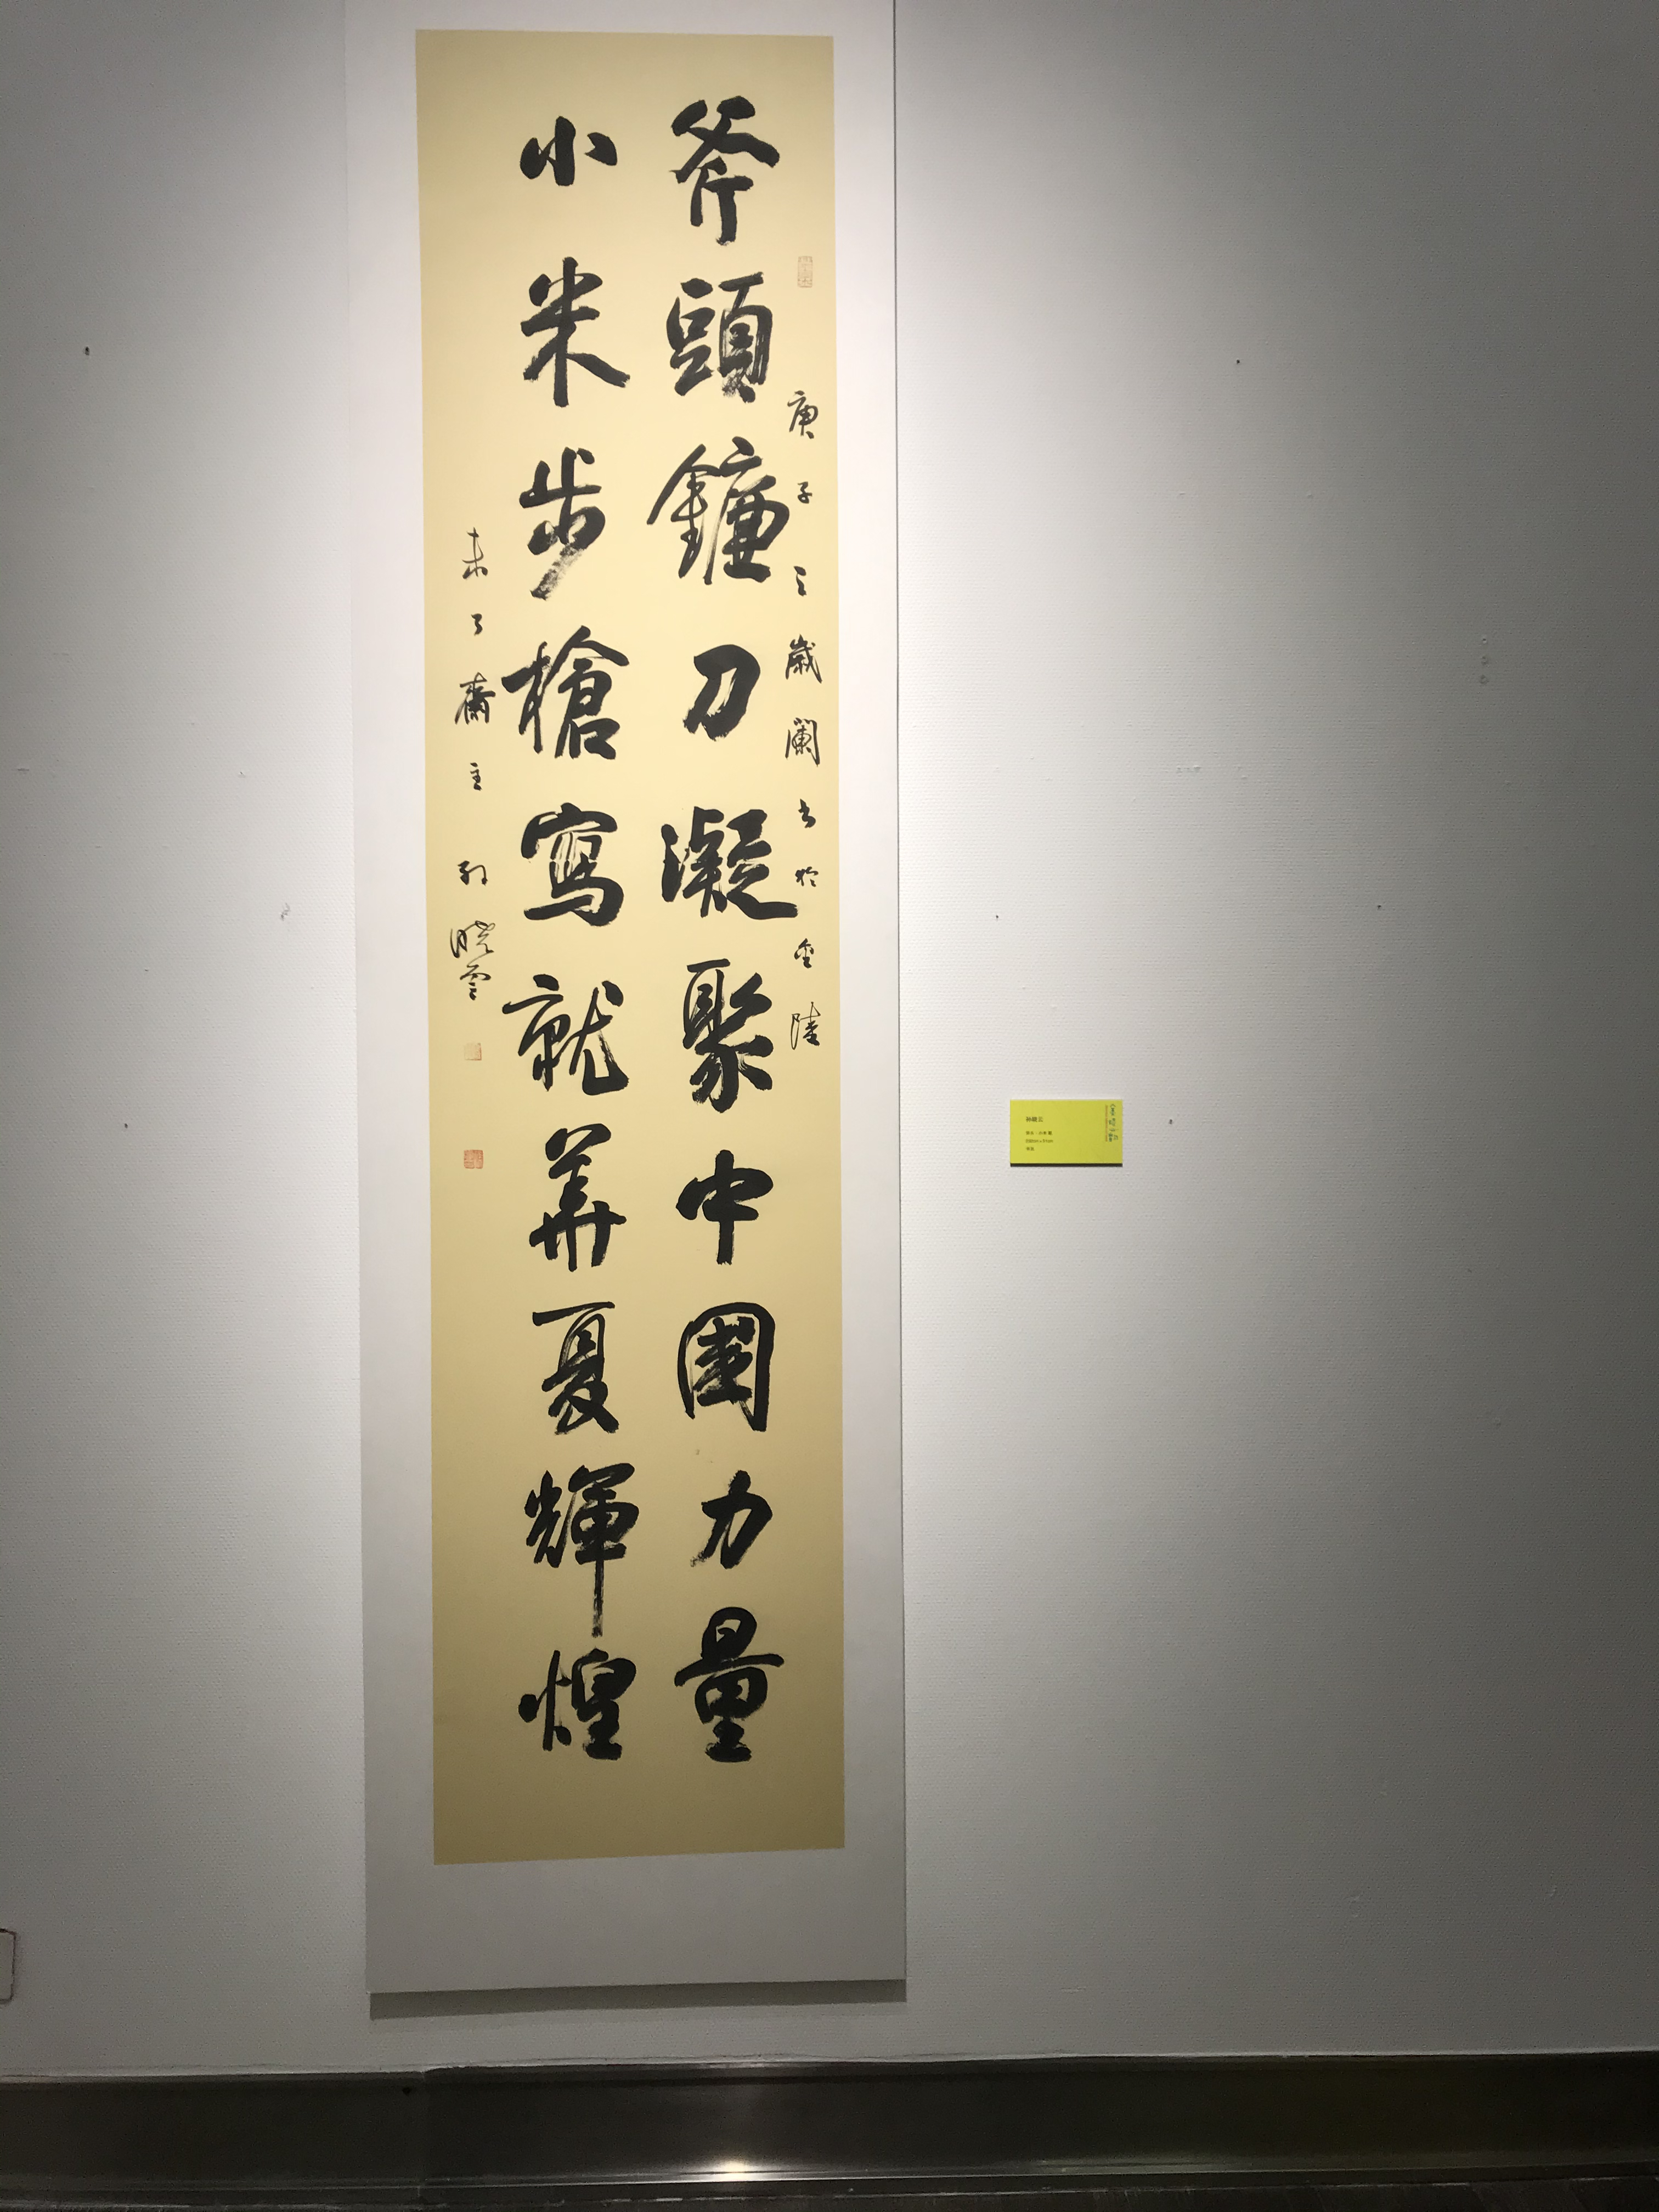 庚子之歲闌書於金陵
斧頭鐮刀凝聚中國力量
小米步槍寫就華夏輝煌
未了齋主孫曉雲
孫曉云